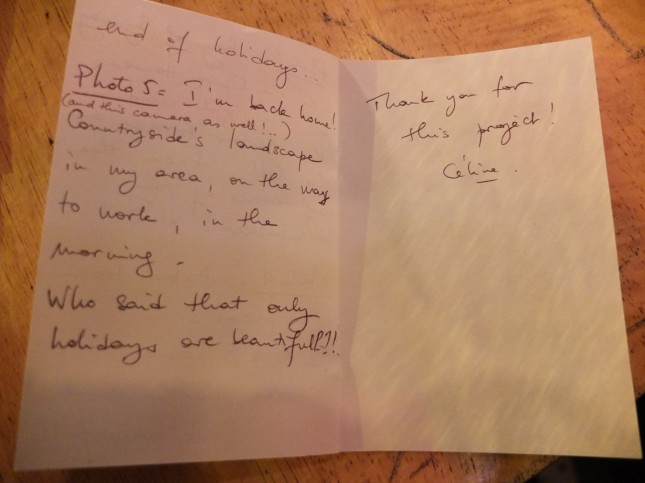 end of holidays...
Photo 5: I'm back home!
(and this camera as well!..)
Countryside's landscape
in my area, on the way
to work, in the
morning.
Who said that only
holidays are beautifull?!!
Thank you for
this project!
Céline.